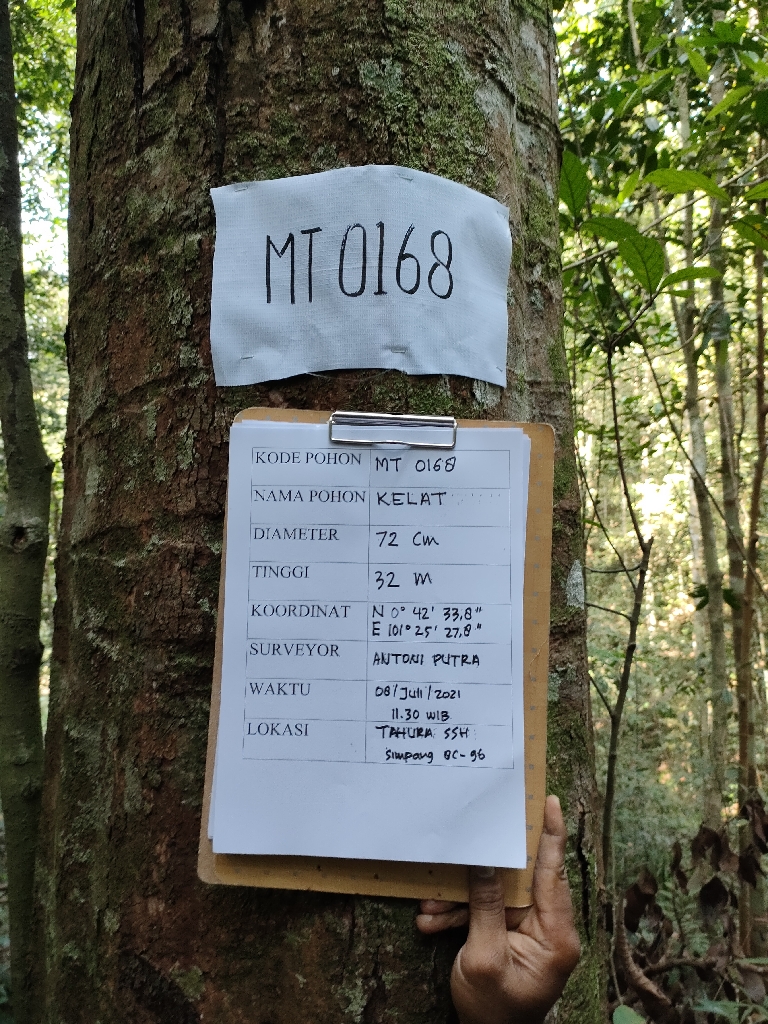 MT 0168
KODE POHON MT 0168
NAMA POHON KELAT
DIAMETER 72 Cm
TINGGI 32 M
KOORDINAT N 0° 42' 33,8"
E 101° 25' 27,8"
SURVEYOR ANTONI PUTRA
WAKTU 08/Juli/2021
11.30 WIB
LOKASI TAHURA SSH
Simpang BC-96